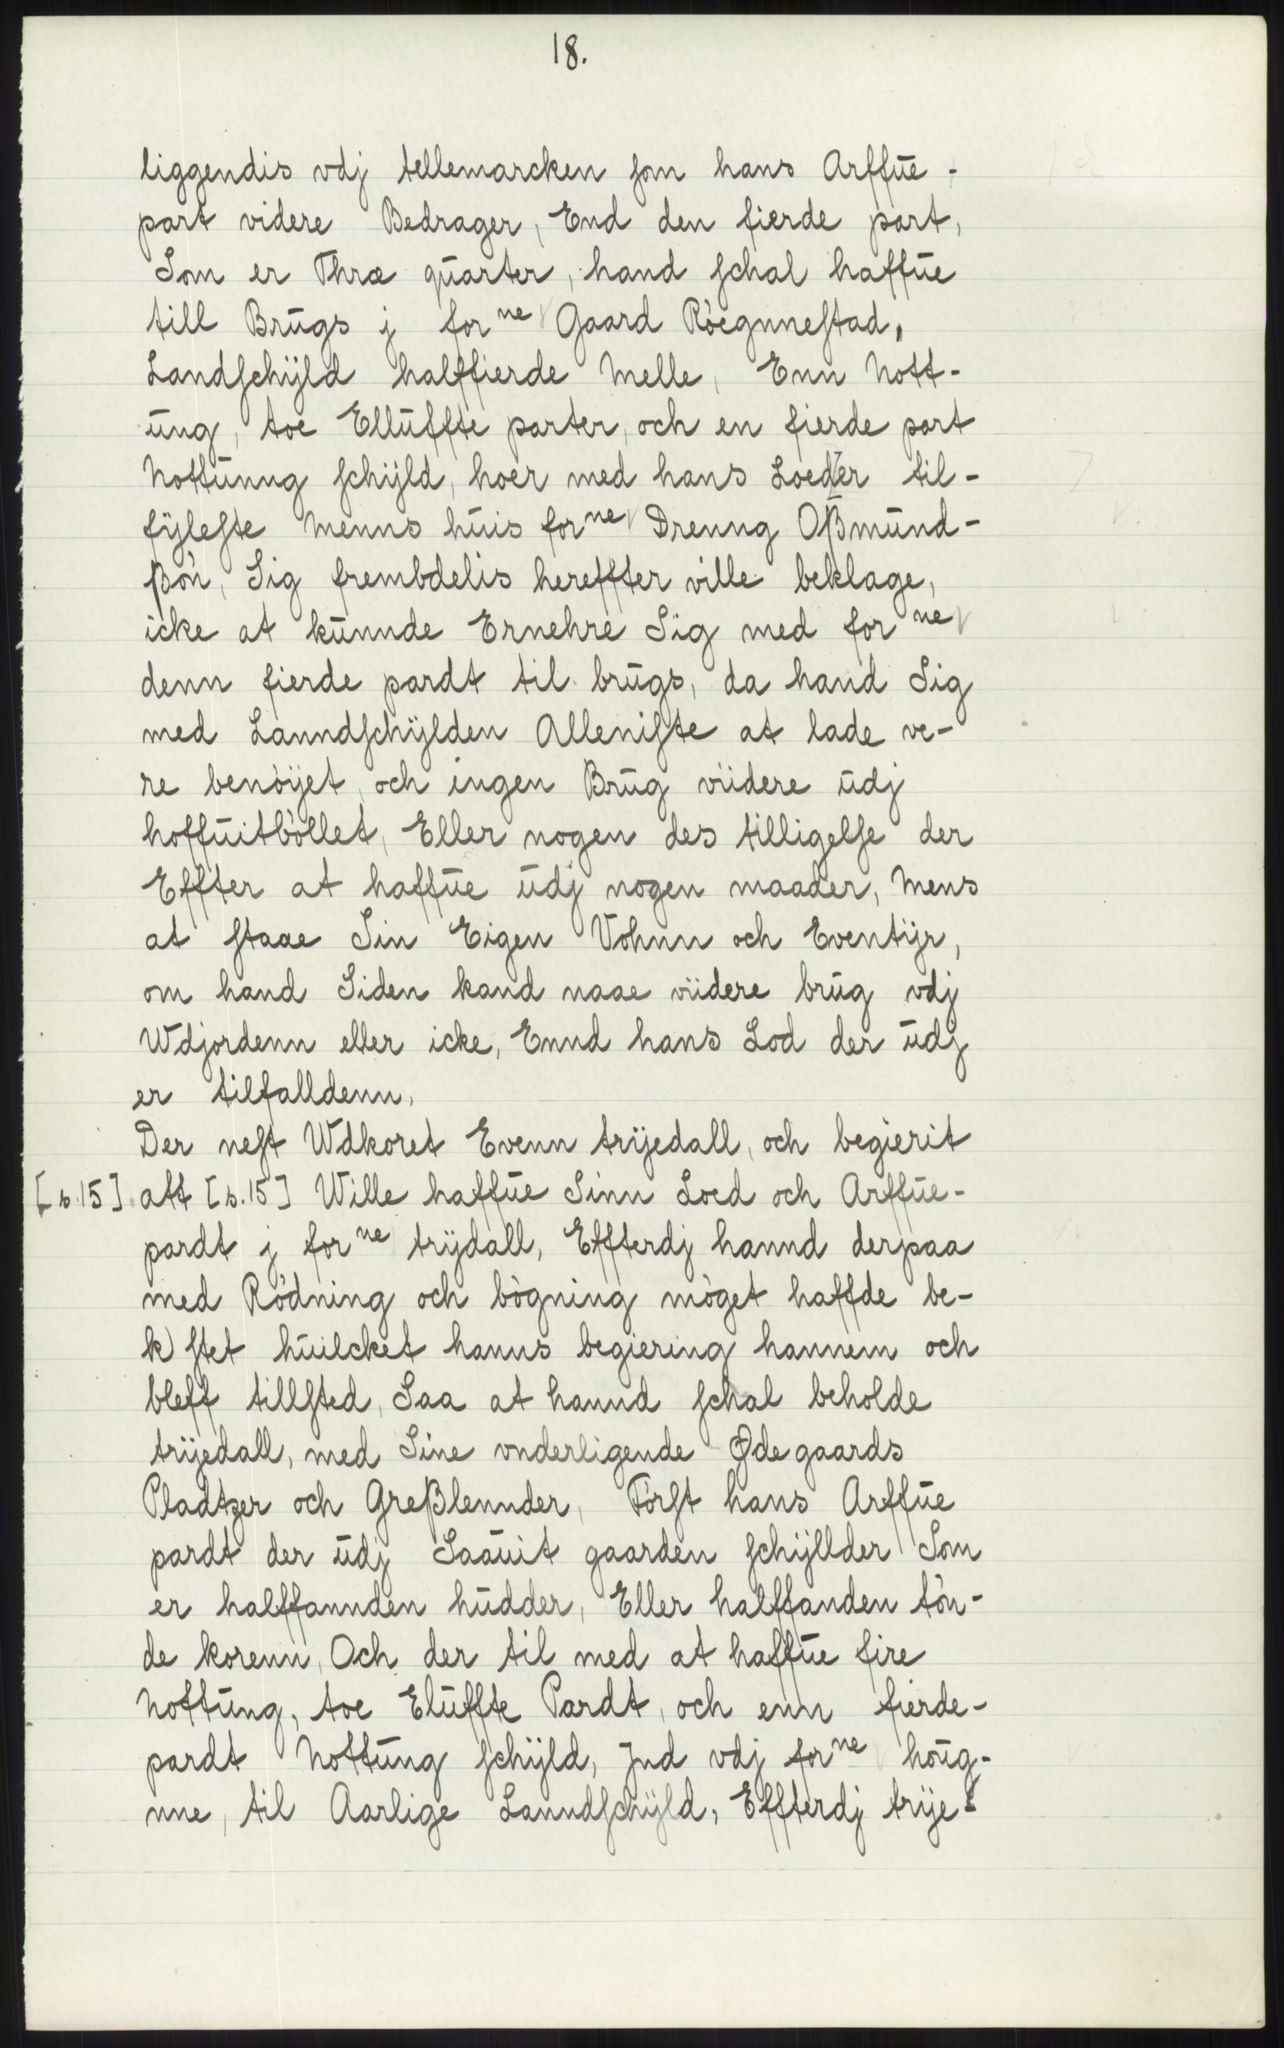 18.
liggendis vdj tellemarcken som hans Arffūe-
part videre Bedrager, End den fierde part,
Som er Thræ quarter, hand schal haffūe
till Brūgs j for ne Gaard Röegnnestad,
Landschÿld halffierde Melle, Enn Nott-
ūng, toe Ellūffte parter, och en fierde part
Nottūnng schÿld, hoer med hans Loeder til-
fÿleste Menns huis for ne Drenng Oßmūnd-
ßön, Sig frembdelis hereffter ville beklage,
icke at kūnnde Ernehre Sig med for ne
denn fierde pardt til brūgs, da hand Sig
med Lanndschÿlden Alleniste at lade ve-
re benöÿet, och ingen Brūg viidere ūdj
hoffuitböllet, Eller nogen des tilligelse der
Effter at haffūe ūdj nogen maader, Mens
at staae Sin Eigen Vohnn och Eventÿr,
om hand Siden kand naae viidere brūg vdj
Wdjordenn eller icke, Ennd hans Lod der ūdj
er tilfalldenn.
Der nest Wdkoret Evenn trÿedall, och begierit
[s.15] att [s.15] Wille haffūe Sinn Loed och Arffūe-
pardt j for ne trÿdall, Effterdj hannd derpaa
med Rödning och bögning möget haffde be-
k) stet huilcket hanns begiering hannem och
bleff tillsted, Saa at hannd schal beholde
trÿedall, med Sine vnderligende Ødegaards
Pladtzer och Greßlennder, Först hans Arffūe
pardt der ūdj Saauit gaarden schÿllder Som
er halffannden hūdder, Eller halffanden tön-
de korenn, Och der til med at haffūe fire
Nottūng, toe Elūffte Pardt, och enn fierde-
pardt Nottūng schÿld, Jnd vdj for ne hoūg-
nne, til Aarlige Lanndschÿld, Effterdj trÿe-